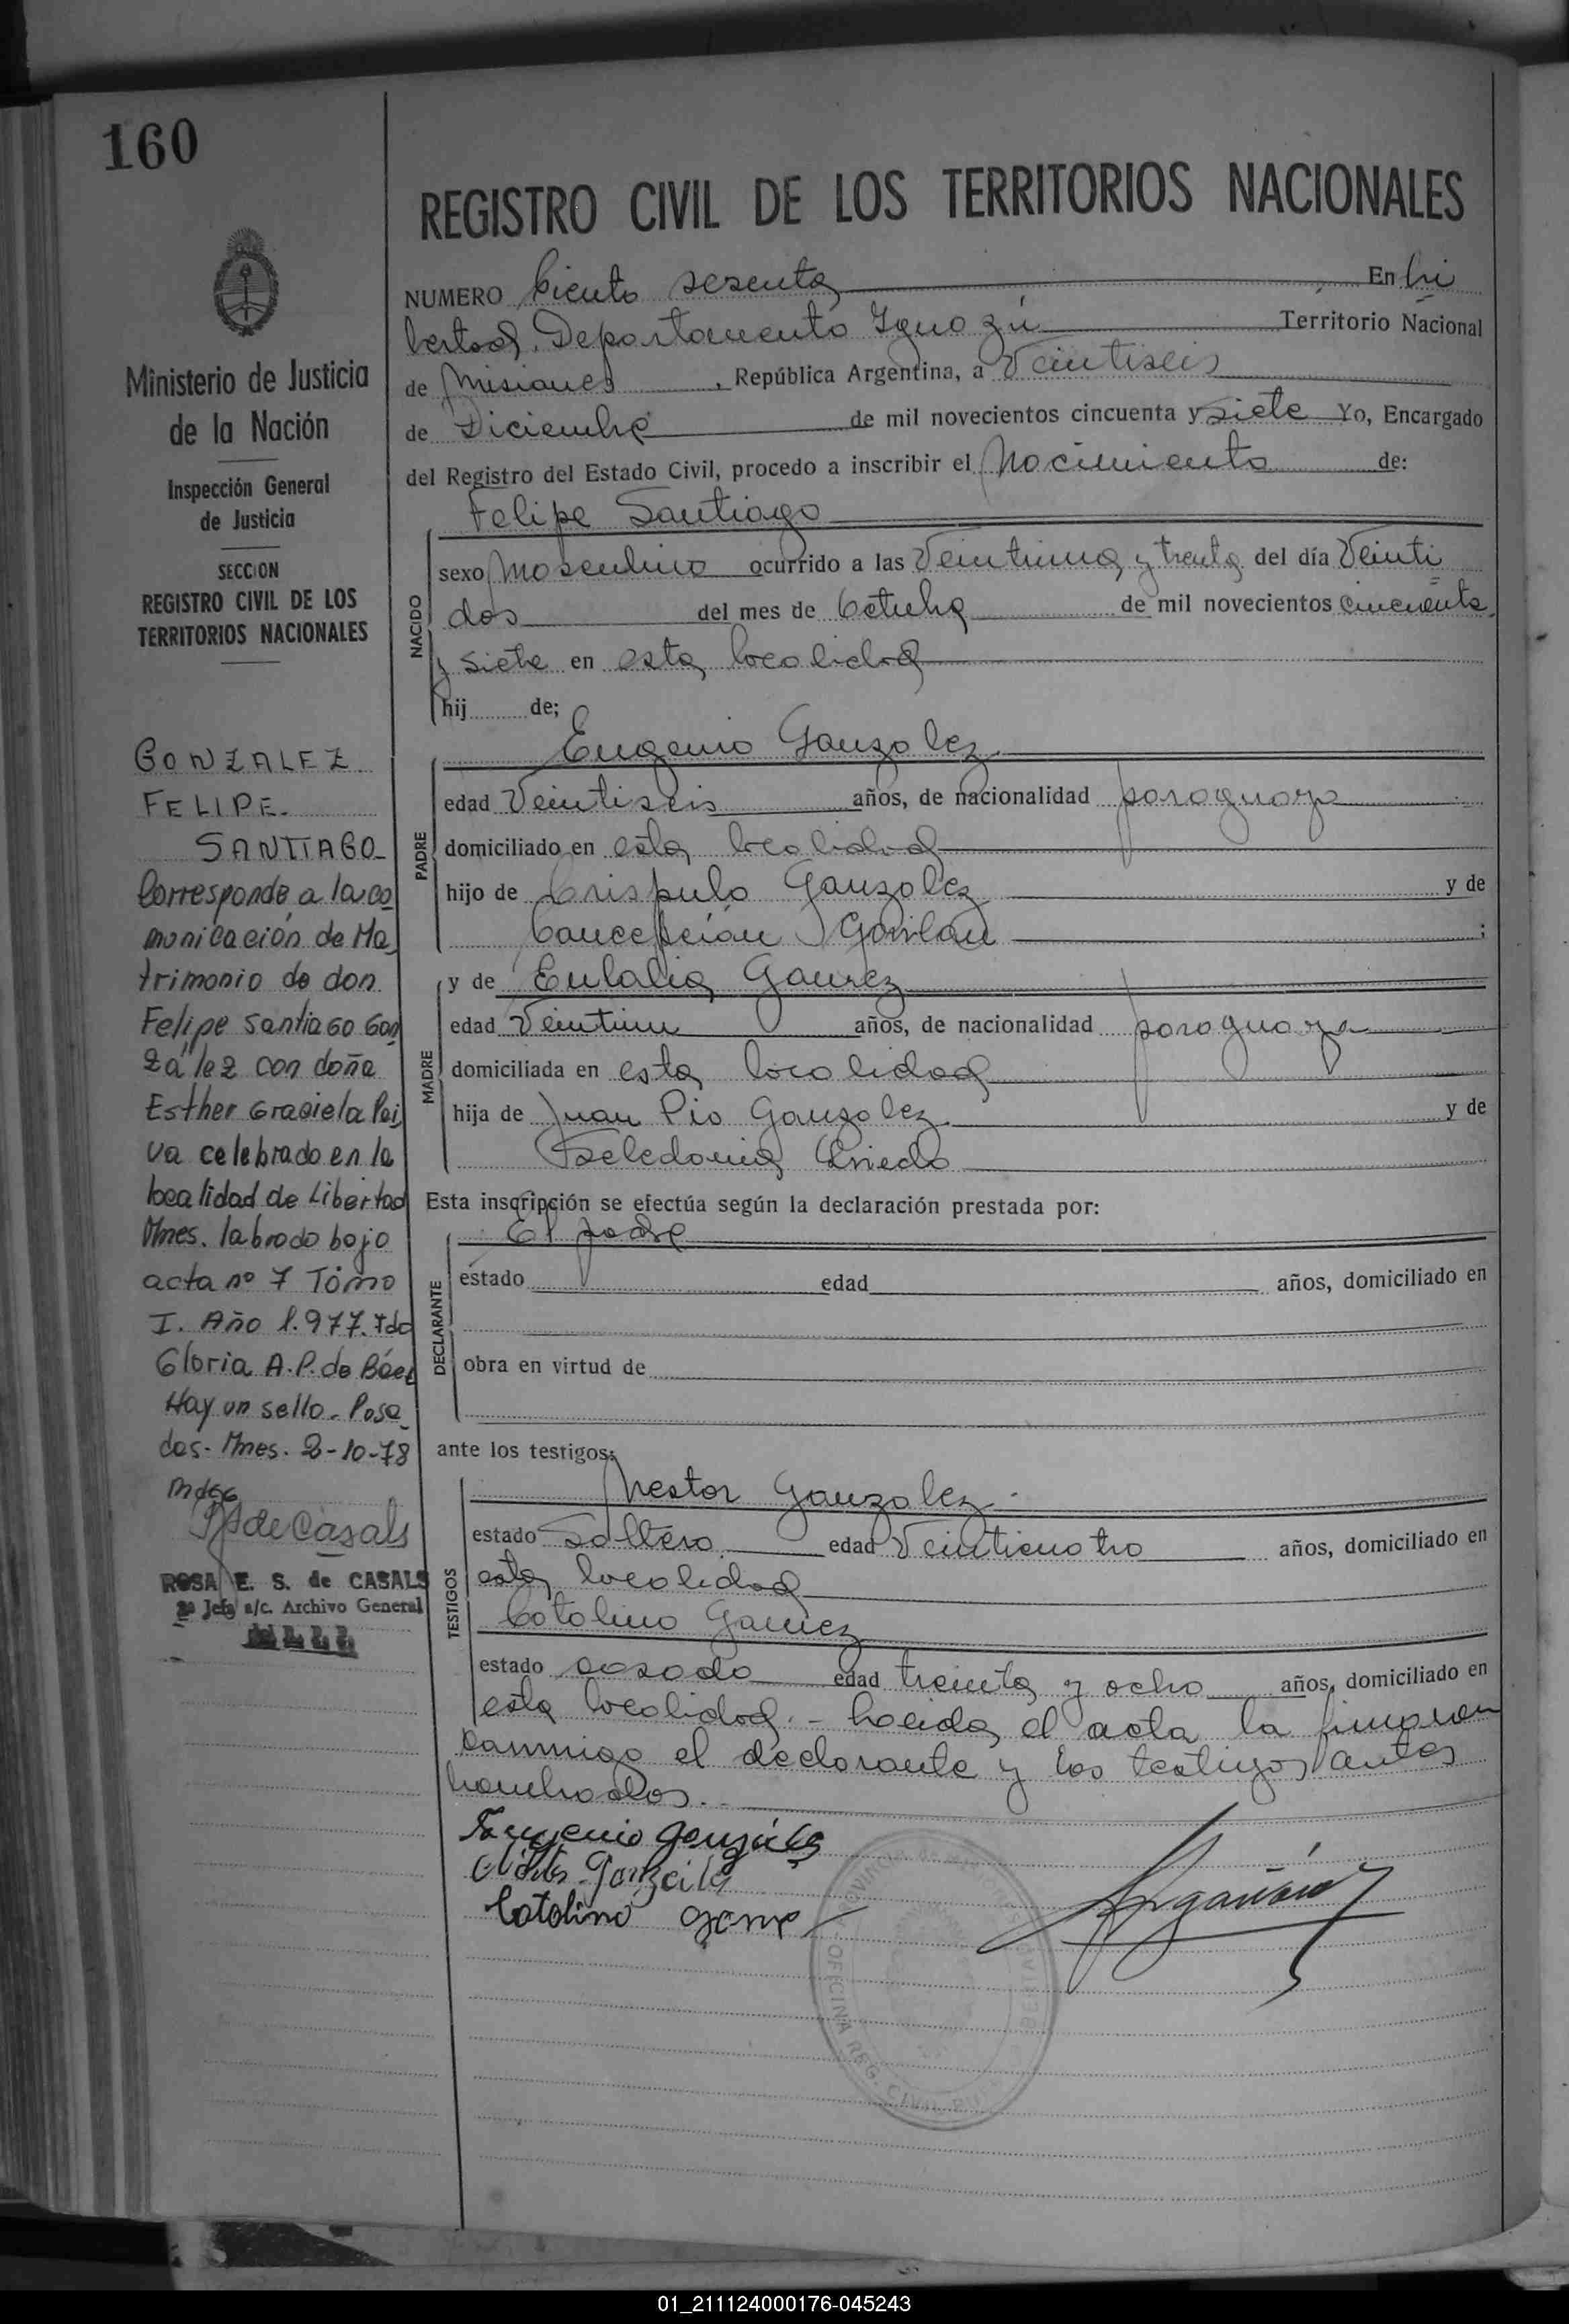 160
REGISTRO CIVIL DE LOS TERRITORIOS NACIONALES
NUMERO Ciento sesenta En Li
bertad. Departamento Iguazú Territorio Nacional
de Misiones, República Argentina, a Veintiseis
de Diciembre de mil novecientos cincuenta y siete Yo, Encargado
del Registro del Estado Civil, procedo a inscribir el Nacimiento de:
Felipe Santiago
NACIDO
sexo Masculino ocurrido a las Veintiuna y treinta del día Veinti
dos del mes de Octubre de mil novecientos cincuenta
y siete en esta localidad
hij de;
PADRE
Eugenio Gonzalez
edad Veintiseis años, de nacionalidad paraguaya
domiciliado en esta localidad
hijo de Crispulo Gonzalez y de
Concepción ;
MADRE
y de Eulalia Gamez
edad Veintiun años, de nacionalidad paraguaya
domiciliada en esta localidad
hija de Juan Pio Gonzalez y de
Seledonia Oviedo
Esta inscripción se efectúa según la declaración prestada por:
DECLARANTE
El padre
estado edad años, domiciliado en
obra en virtud de
ante los testigos:
TESTIGOS
Nestor Gonzalez
estado Soltero edad Veinticuatro años, domiciliado en
esta localidad
Catalino Gamez
estado casado edad treinta y ocho años, domiciliado en
esta localidad. - Leida el acta la firmaron
conmigo el declarante y los testigos antes
nombrados. -
Eugenio González
González
Catalino Game
Ministerio de Justicia
de la Nación
Inspección General
de Justicia
SECCION
REGISTRO CIVIL DE LOS
TERRITORIOS NACIONALES
GONZALEZ
FELIPE.
SANTIAGO
Corresponde a la co
municación de Ma
trimonio de don
Felipe Santiago Gon
zález con doña
Esther Graciela Pai
va celebrado en la
localidad de Libertad
Mnes. labrado bajo
acta nº 7 Tomo
I. Año 1.977. Fdo
Gloria A. P. de Báez
Hay un sello - Posa
das - Mnes. 2-10-78
de Casals
ROSA E. S. de CASALS
2ª Jefa a/c. Archivo General
OFICINA REG. CIVIL
01_211124000176-045243